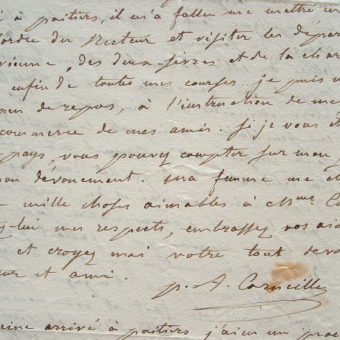 à poitiers, il m'a fallu me mettre en
ordre du Recteur et visiter les dépar
vienne, des deux sèvres et de la char
enfin de toute mes courses je puis
peu de repos, à l'instruction de me
commerce de mes amis. Si je vous
pays, vous pouvez compter sur mon
mon dévouement. ma femme me ch
mille choses aimables à Mme Co
lui mes respects, embrassez vos
et croyez moi votre tout devo
eur et ami.
p. A. Corneille
arrivé à poitiers j'ai un